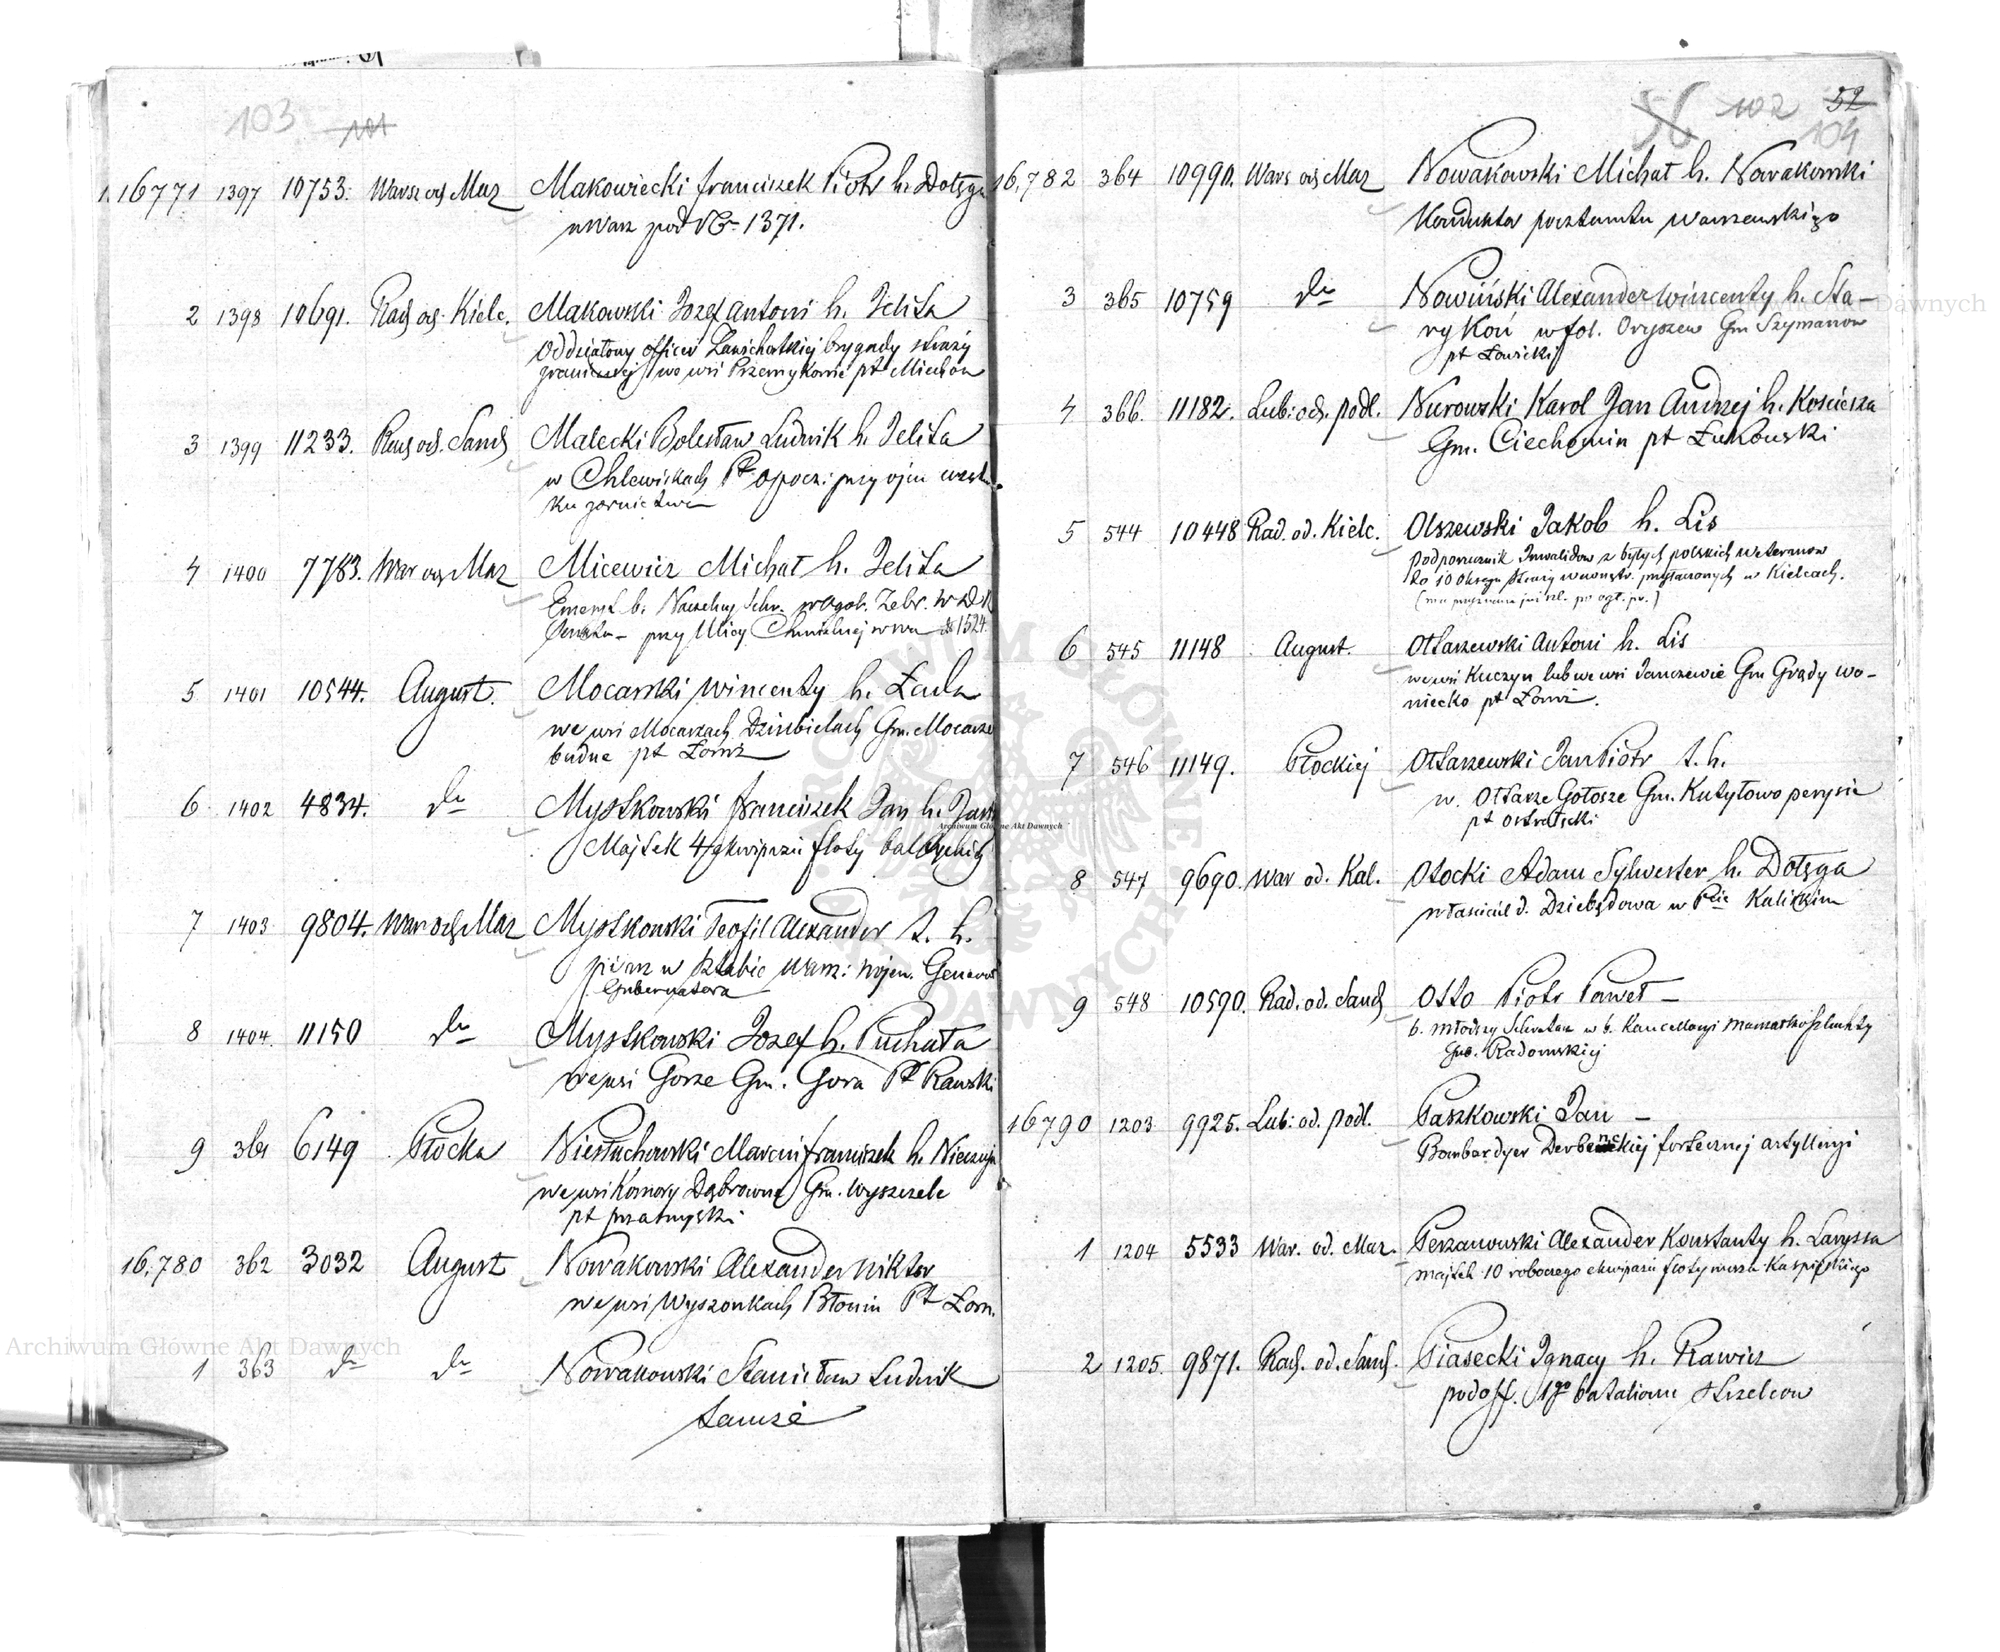 103 101
16771 1397 10753. Warsz og Maz Makowiecki Franciszek Piotr h. Dołęga
w Warsz pod No 1371.
2 1398 10691. Rad og. Kielc. Makowski Jozef Antoni h. Jelita
Oddziałowy officer Zawichostkiej brygady straży
granicznej we wsi Przemykowie pt Miechow
3 1399 11233. Rad od. Sand Małecki Bolesław Ludwik h. Jelita
w Chlewiskach Pt opocz: przy ojcu
ku gornictwa
4 1400 7783. War og Maz Micewicz Michał h. Jelita
Emeryt b: Naczelny Zebr. W D
Senatu – przy Ulicy Chmielnej w wa No 1524.
5 1401 10544. August. Mocarski Wincenty h. Łada
we wsi Mocarzach Dziubielach Gm. Mocarze
budne pt Łomż
6 1402 4834. do Mystkowski Franciszek Jan h.
Majtek 4 ekwipażu floty
7 1403 9804. War og Maz Mystkowski Teofil Alexander t. h.
pisarz w Sztabie Warsz: wojen. Generał
Gubernatora
8 1404. 11150 do Mystkowski Jozef h. Puchała
we wsi Gorze Gm. Gora Pt Rawski
9 361 6149 Płocka Niestuchowski Marcin Franciszek h. Nieczuja
we wsi Komory Dąbrowne Gm. Wyszezele
pt przasnyski
16,780 362 3032 August Nowakowski Alexander Wiktor
we wsi Wyszonkach Błonie Pt Łom.
1 363 do do Nowakowski Stanisław Ludwik
tamże
56 102 52
104
16,782 364 10990. Wars og Maz Nowakowski Michał h. Nowakowski
Konduktor pocztamtu Warszawskiego
3 365 10759 do Nowiński Alexander Wincenty h. Sta–
ry Koń w fol. Oryszew Gm Szymanow
pt Łowicki
4 366. 11182. Lub: od. podl. Nurowski Karol Jan Andrzej h. Kościesza
Gm. Ciechomin pt Łukowski
5 544 10448 Rad. od. Kielc. Olszewski Jakob h. Lis
Podporucznik Inwalidow z byłych polskich weteranow
do 10 Okręgu Straży wewnętr. w Kielcach.
6 545 11148 August. Ołtarzewski Antoni h. Lis
we wsi Kuczyn lub we wsi Janczewie Gm Grądy wo–
niecko pt Łomż.
7 546 11149. Płockiej Ołtarzewski Jan Piotr t. h.
w. Ołtarze Gołosze Gm. Kutyłowo perysie
pt ostrołęcki
8 547 9690. War od. Kal. Otocki Adam Sylwester h. Dołęga
właściciel d. Dziebędowa w Pcie Kaliskim
9 548 10590. Rad. od. Sand Otto Piotr Paweł –
b. młodszy Sekretarz w b. Kancellaryi Marszałka Szlachty
Gub. Radomskiej
16790 1203 9925. Lub: od. podl. Paszkowski Jan –
Bombardyer Derbenckiej fortecznej artylleryi
1 1204 5533 War. od. Maz. Perzanowski Alexander Konstanty h. Laryssa
majtek 10 roboczego ekwipażu floty morza Kaspijskiego
2 1205. 9871. Rad. od. Sand. Piasecki Ignacy h. Rawicz
podoff. 1go batalionu Strzelcow
Archiwum Główne Akt Dawnych
Archiwum Główne Akt Dawnych
Archiwum Główne Akt Dawnych
ARCHIWUM GŁÓWNE AKT DAWNYCH